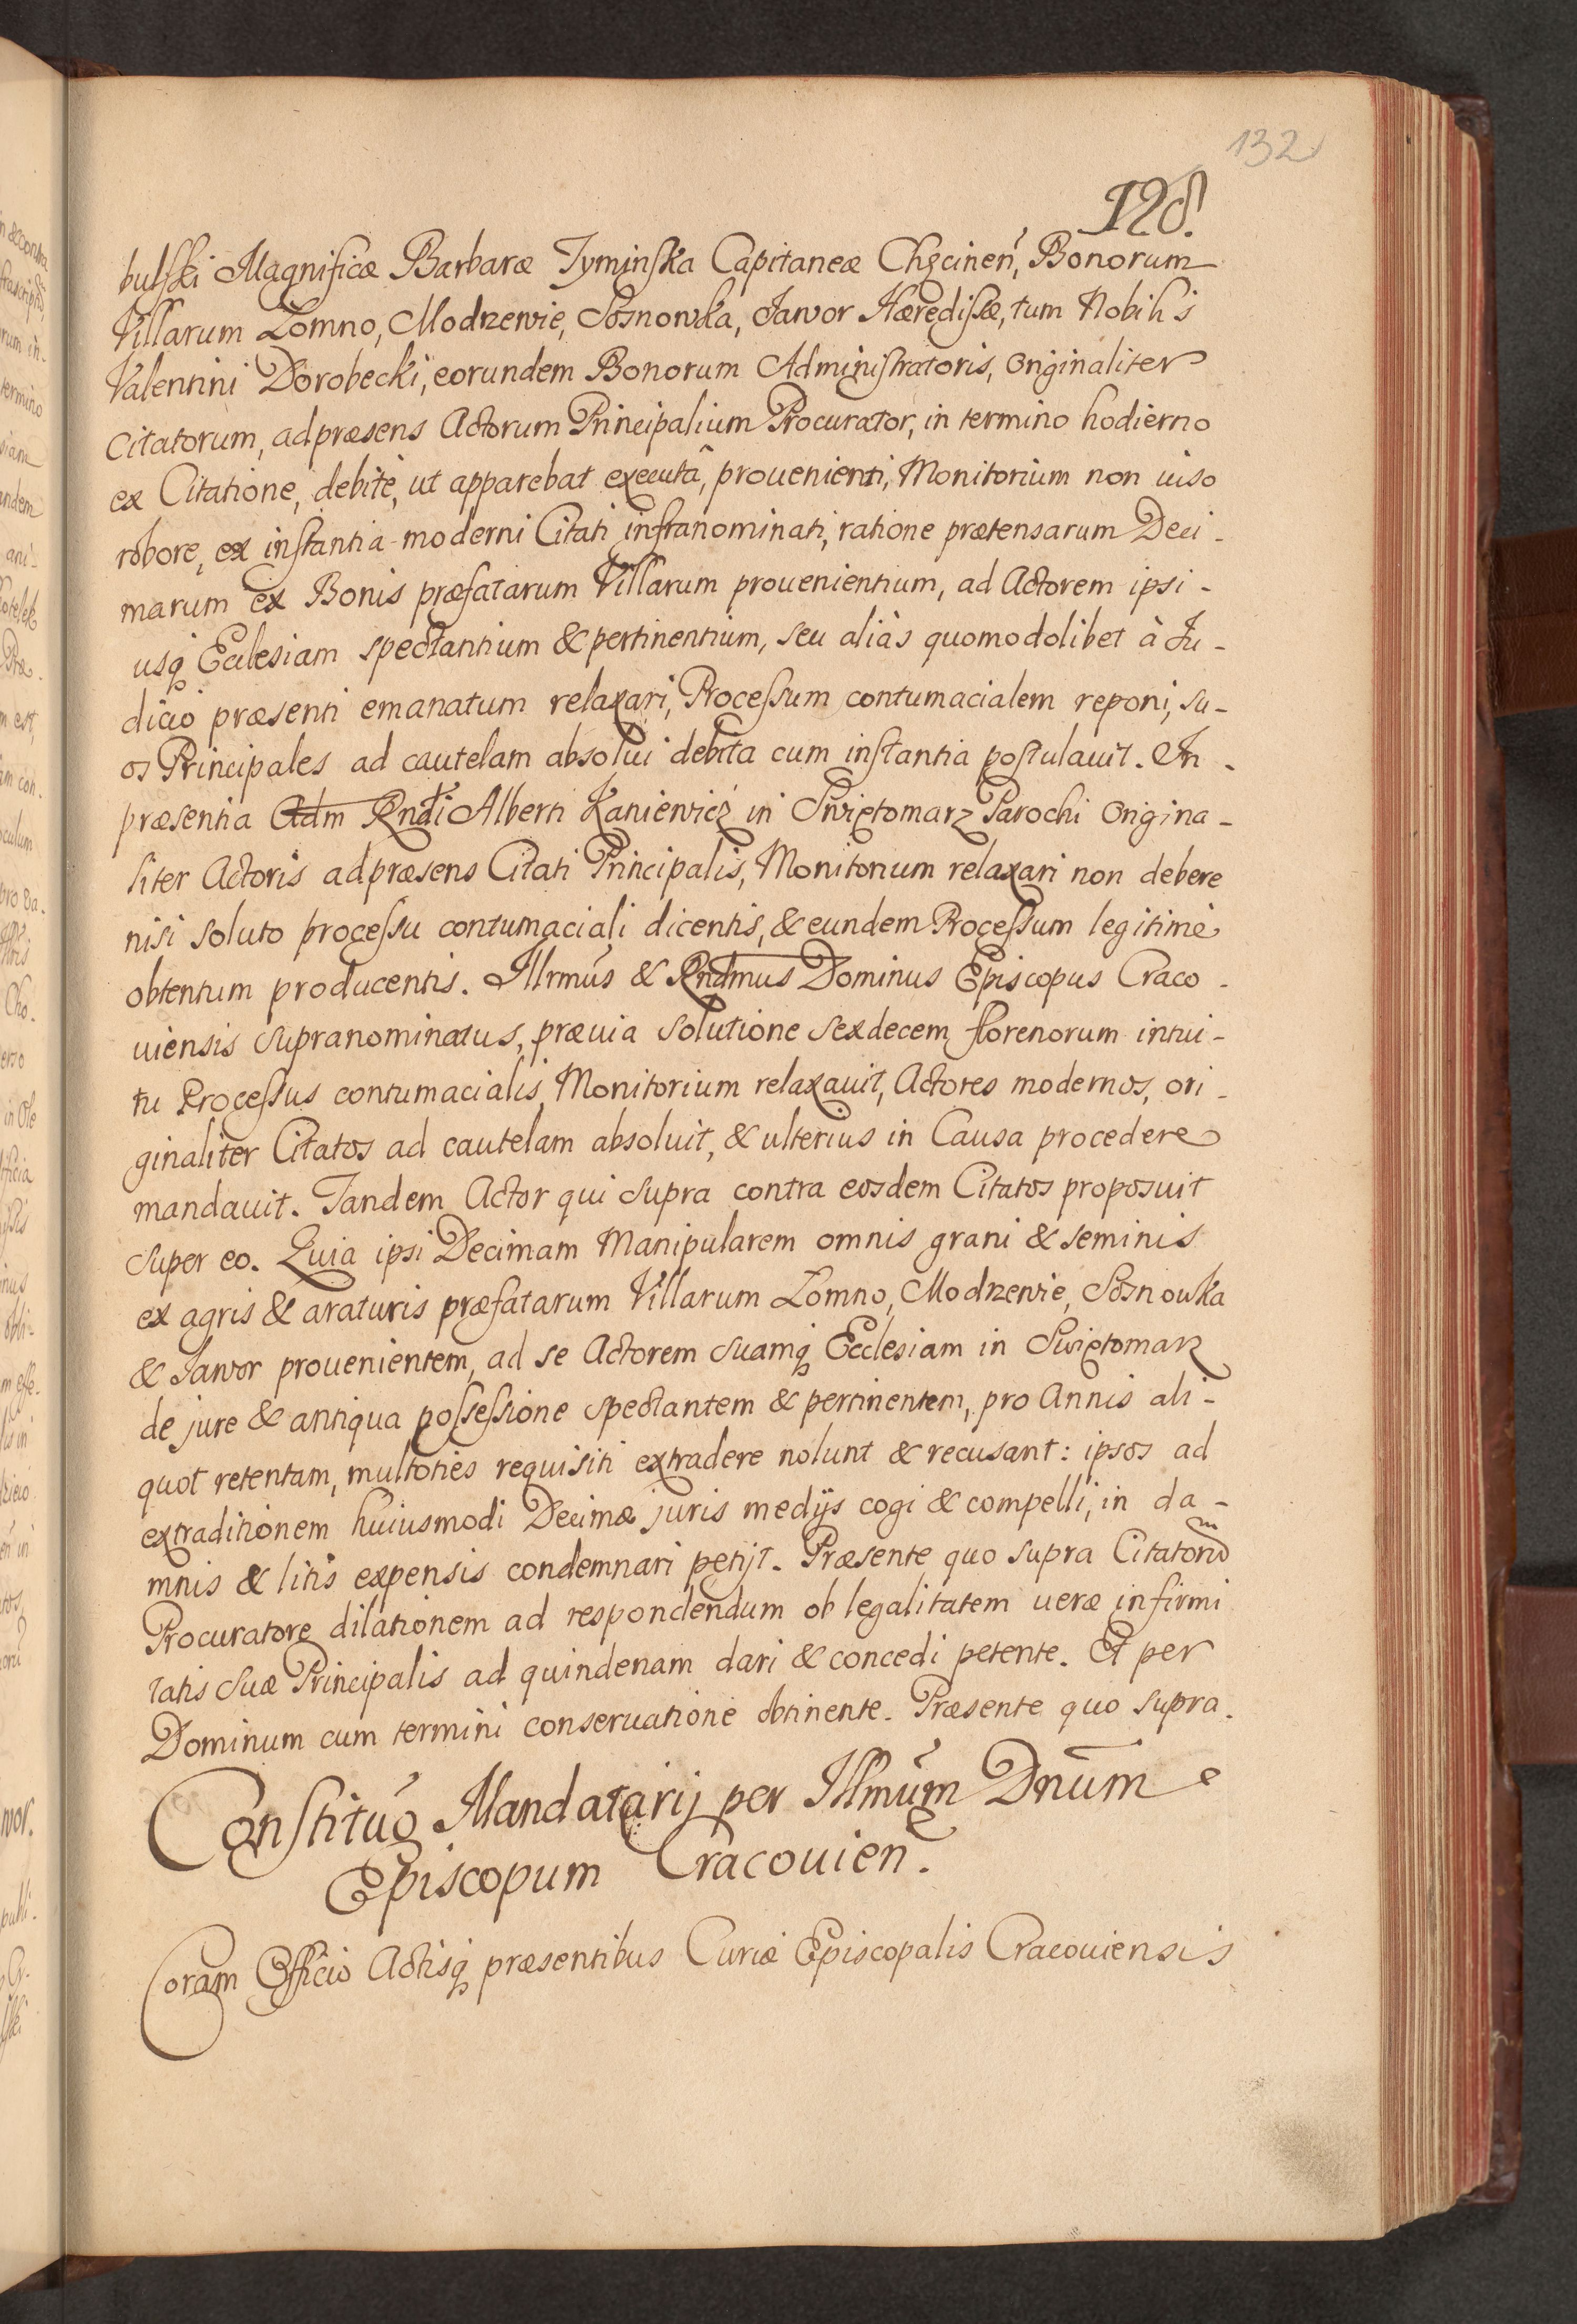 132
128.
bulski Magnificæ Barbaræ Tyminska Capitaneæ Chęcinen̄, Bonorum
Villarum Łomno, Modrzewie, Sosnowka, Jawor Hæredissæ, tum Nobilis
Valentini Dorobecki, eorundem Bonorum Administratoris, originaliter
citatorum, adpræsens Actorum Principalium Procurator, in termino hodierno
ex Citatione, debitè, ut apparebat executâ, prouenienti, Monitorium non uiso
robore, ex instantia moderni Citati infranominati, ratione prætensarum Deci-
marum ex Bonis præfatarum Villarum prouenientium, ad Actorem ipsi-
usq Ecclesiam spectantium & pertinentium, seu aliàs quomodolibet à Ju-
dicio præsenti emanatum relaxari, Processum contumacialem reponi, su-
os Principales ad cautelam absolui debita cum instantia postulauit. In
præsentia Adm Rndi Alberti Kaniewicz in Swiętomarz Parochi Origina-
liter Actoris adpræsens Citati Principalis, Monitorium relaxari non debere
nisi soluto processu contumaciali dicentis, & eundem Processum legitimè
obtentum producentis. Illrmus & Rndmus Dominus Episcopus Craco-
uiensis supranominatus, præuia solutione sexdecem florenorum intui-
tu Processus contumacialis, Monitorium relaxauit, Actores modernos, ori-
ginaliter Citatos ad cautelam absoluit, & ulterius in Causa procedere
mandauit. Tandem Actor qui supra contra eosdem Citatos proposuit
super eo. Quia ipsi Decimam Manipularem omnis grani & seminis
ex agris & araturis præfatarum Villarum Łomno, Modrzewie, Sosnowka
& Jawor prouenientem, ad se Actorem suamq Ecclesiam in Swiętomarz
de jure & antiqua possessione spectantem & pertinentem, pro Annis ali-
quot retentam, multoties requisiti extradere nolunt & recusant: ipsos ad
extraditionem huiusmodi Decimæ juris medijs cogi & compelli, in da-
mnis & litis expensis condemnari petijt. Præsente quo supra Citatorum
Procuratore dilationem ad respondendum ob legalitatem ueræ infirmi
tatis suæ Principalis ad quindenam dari & concedi petente. Et per
Dominum cum termini conseruatione obtinente. Præsente quo supra.
Constituo Mandatarij per Illmum Dnum
Episcopum Cracouien̄.
Coram Officio Actisq præsentibus Curiæ Episcopalis Cracouiensis